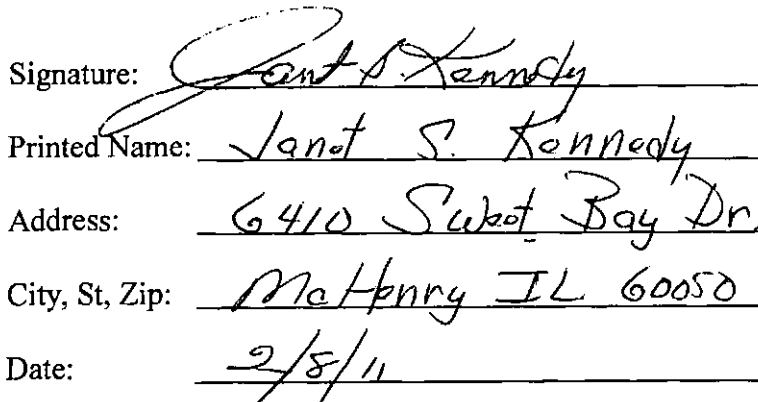 Signature: Janet S. Kennedy
Printed Name: Janet S. Kennedy
Address: 6410 Sweet Bay Dr.
City, St, Zip: McHenry IL 60050
Date: 2/8/11